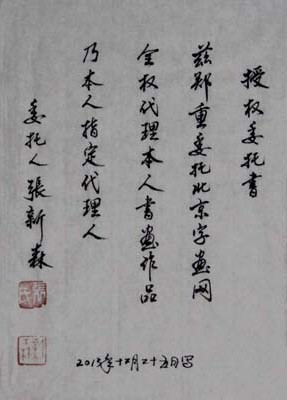 授权委托書
兹郑重委托北京字畫网
全权代理本人書畫作品
乃本人指定代理人
委托人張新森
2013年十二月二十五日